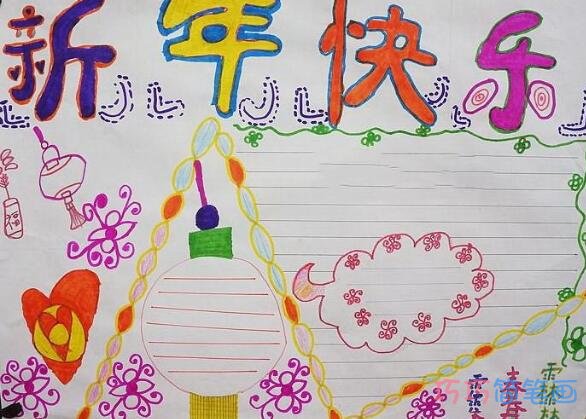 新年快乐
巧巧简笔画